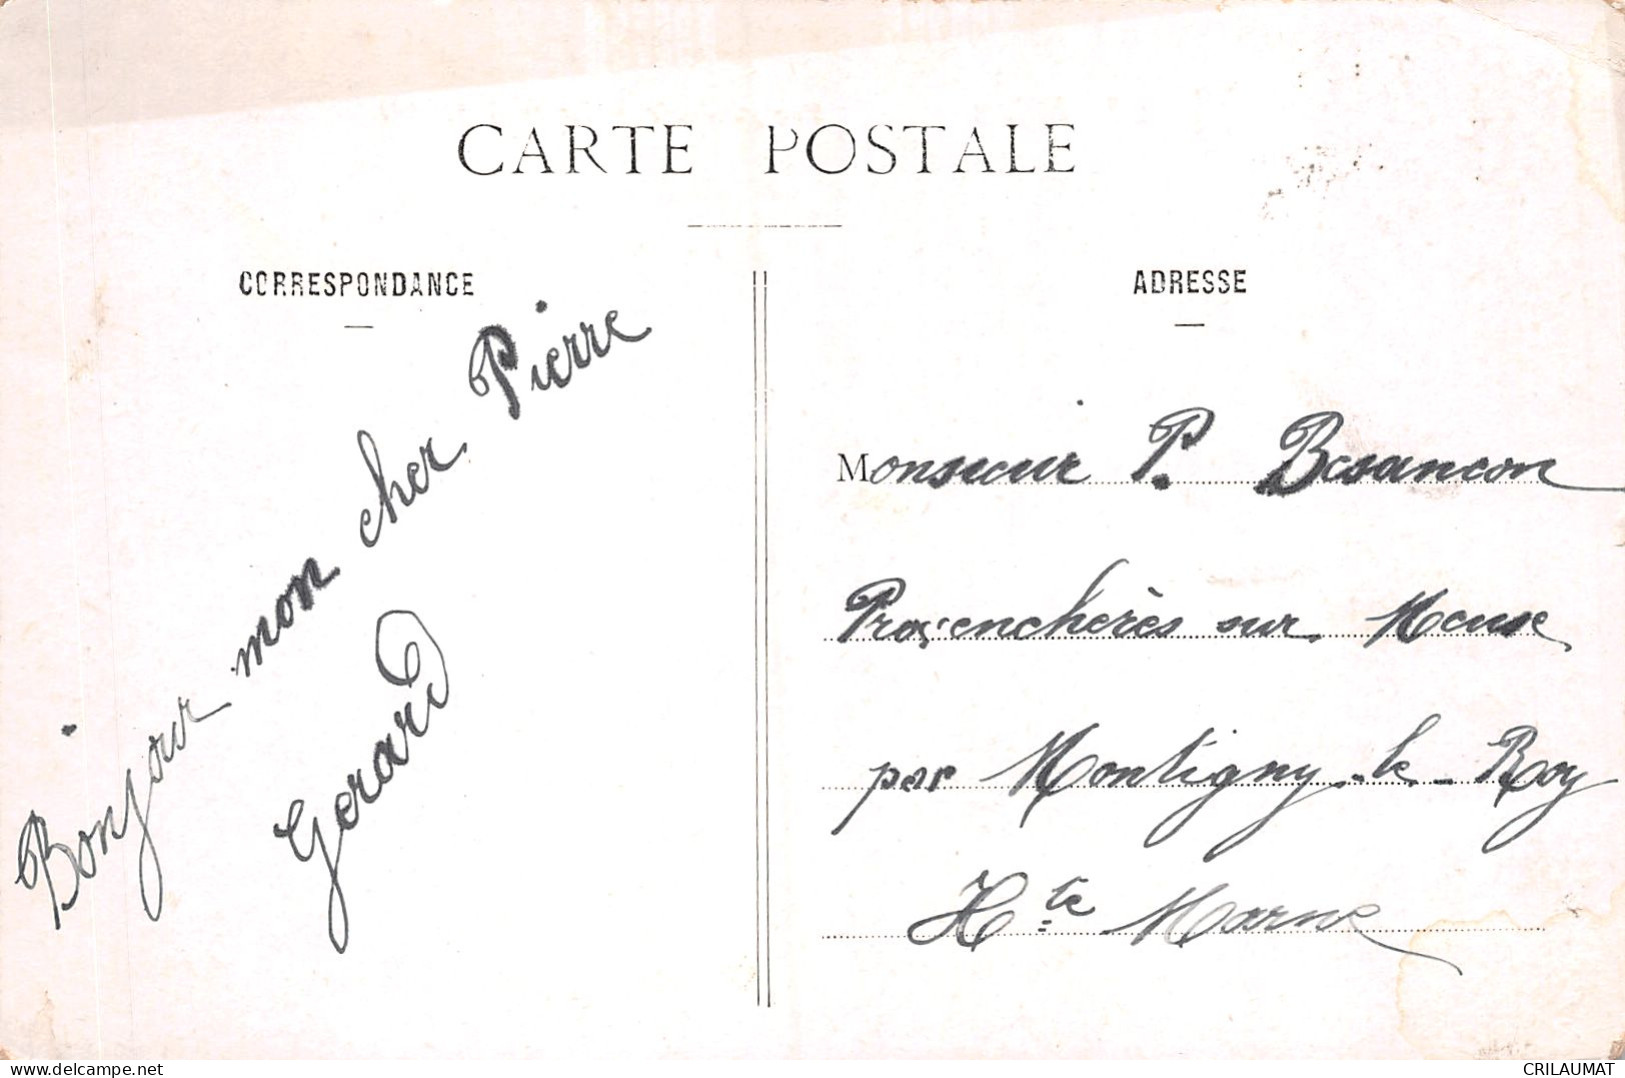 CARTE POSTALE
CORRESPONDANCE
Bonjour mon cher Pierre
Gerard
ADRESSE
Monsieur P. Besancon
Provenchères sur Meuse
par Montigny-le-Roy
Hte Marne
delcampe.net
CRILAUMAT